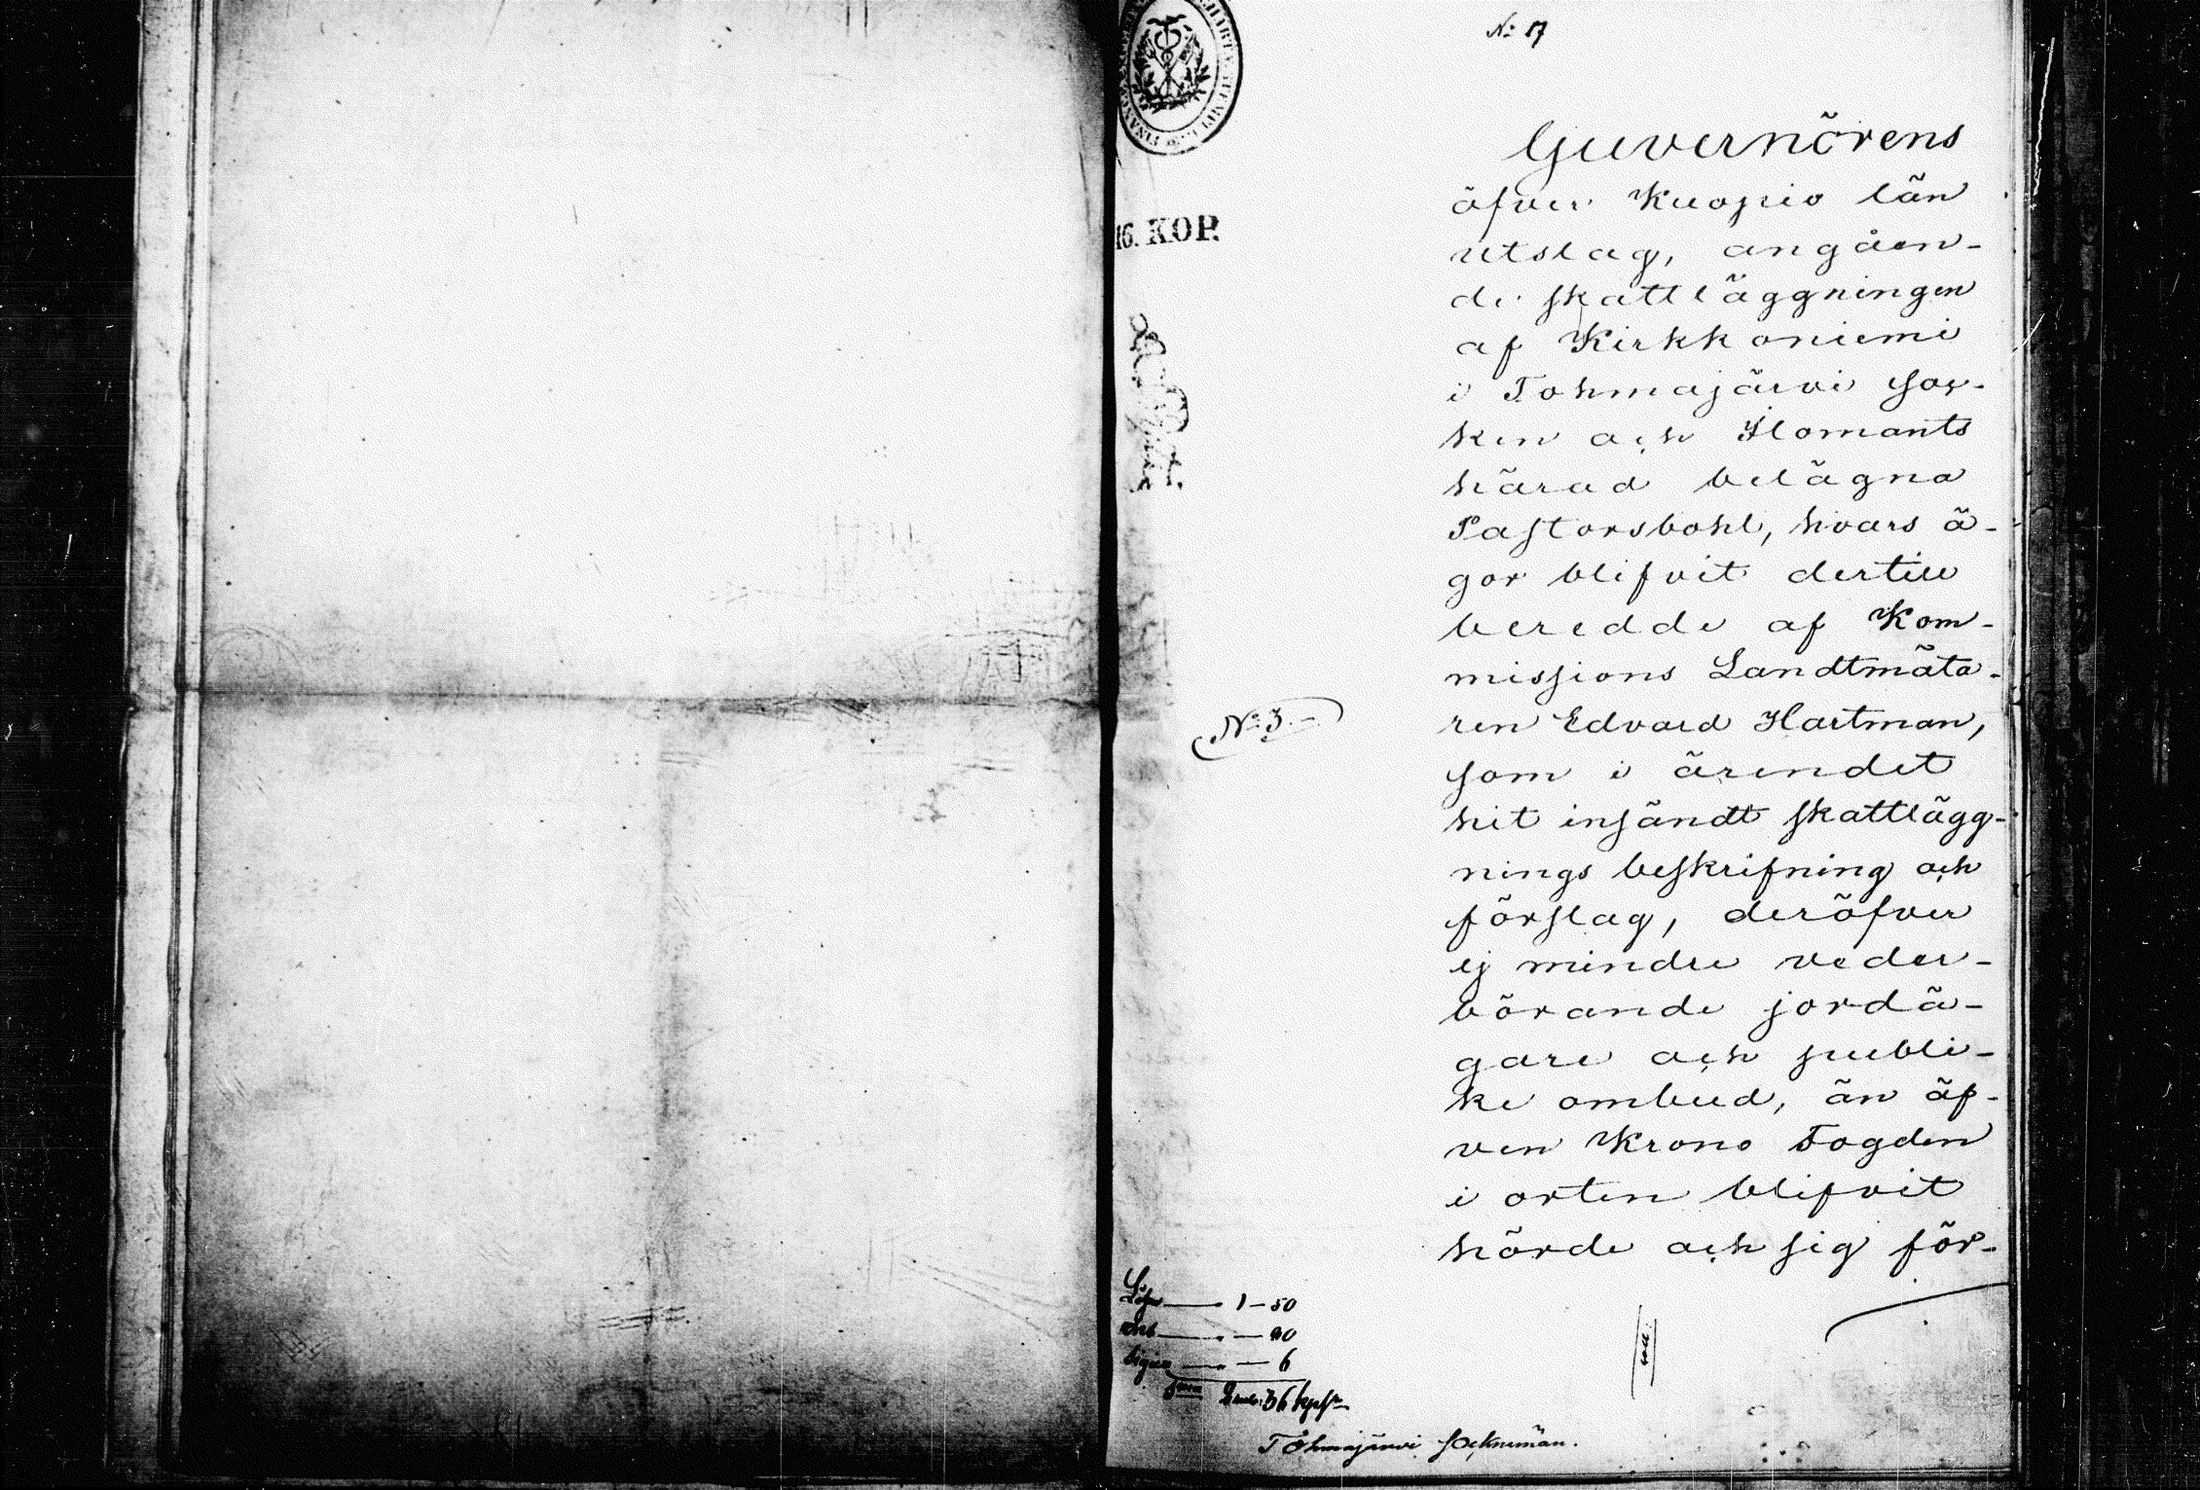 № 17
16. KOP.
Guvernörens
öfver Kuopio län
utslag, angåen-
de skattläggningen
af Kirkkoniemi
i Tohmajärvi soc-
ken och Ilomants
härad belägna
Pastorsbohl, hvars ä-
gor blifvit dertill
beredde af Kom-
missions Landtmäta-
ren Edvard Hartman,
som i ärendet
hit insändt skattlägg-
nings beskrifning och
förslag, deröfver
ej mindre veder-
börande jordä-
gare och publi-
ke ombud, än äf-
ven Krono Fogden
i orten blifvit
hörde och sig för-
№ 3.
Lösn 1 - 50
- 6
Tohmajärvi Socknemän.